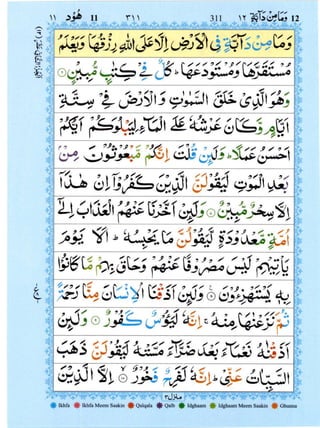 ١١ هُوْد 11 ٣١١ 311 ١٢ وَمَا مِنْ دَآبَّةٍ 12
وَمَا مِنْ دَآبَّةٍ فِي الْاَرْضِ اِلَّا عَلَى اللّٰهِ رِزْقُهَا وَيَعْلَمُ
مُسْتَقَرَّهَا وَمُسْتَوْدَعَهَا ؕ كُلٌّ فِيْ كِتٰبٍ مُّبِيْنٍ
وَهُوَ الَّذِيْ خَلَقَ السَّمٰوٰتِ وَالْاَرْضَ فِيْ سِتَّةِ
اَيَّامٍ وَّكَانَ عَرْشُهٗ عَلَى الْمَآءِ لِيَبْلُوَكُمْ اَيُّكُمْ
اَحْسَنُ عَمَلًا ؕ وَلَئِنْ قُلْتَ اِنَّكُمْ مَّبْعُوْثُوْنَ مِنْ
بَعْدِ الْمَوْتِ لَيَقُوْلَنَّ الَّذِيْنَ كَفَرُوْٓا اِنْ هٰذَآ
اِلَّا سِحْرٌ مُّبِيْنٌ وَلَئِنْ اَخَّرْنَا عَنْهُمُ الْعَذَابَ اِلٰٓى
اُمَّةٍ مَّعْدُوْدَةٍ لَّيَقُوْلُنَّ مَا يَحْبِسُهٗ ؕ اَلَا يَوْمَ
يَاْتِيْهِمْ لَيْسَ مَصْرُوْفًا عَنْهُمْ وَحَاقَ بِهِمْ مَّا كَانُوْا
بِهٖ يَسْتَهْزِءُوْنَ وَلَئِنْ اَذَقْنَا الْاِنْسَانَ مِنَّا رَحْمَةً
ثُمَّ نَزَعْنٰهَا مِنْهُ ۚ اِنَّهٗ لَيَئُوْسٌ كَفُوْرٌ وَلَئِنْ
اَذَقْنٰهُ نَعْمَآءَ بَعْدَ ضَرَّآءَ مَسَّتْهُ لَيَقُوْلَنَّ ذَهَبَ
السَّيِّاٰتُ عَنِّيْ ؕ اِنَّهٗ لَفَرِحٌ فَخُوْرٌ اِلَّا الَّذِيْنَ
منزل ٣
Ikhfa Ikhfa Meem Saakin Qalqala Qalb Idghaam Idghaam Meem Saakin Ghunna